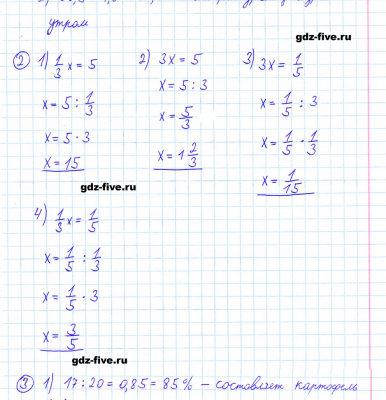 утром
gdz-five.ru
② 1) 1/3 x = 5
x = 5 : 1/3
x = 5 · 3
x = 15
gdz-five.ru
2) 3x = 5
x = 5 : 3
x = 5/3
x = 1 2/3
3) 3x = 1/5
x = 1/5 : 3
x = 1/5 · 1/3
x = 1/15
4) 1/3 x = 1/5
x = 1/5 : 1/3
x = 1/5 · 3
x = 3/5
gdz-five.ru
③ 1) 17 : 20 = 0,85 = 85% – составляет картофель